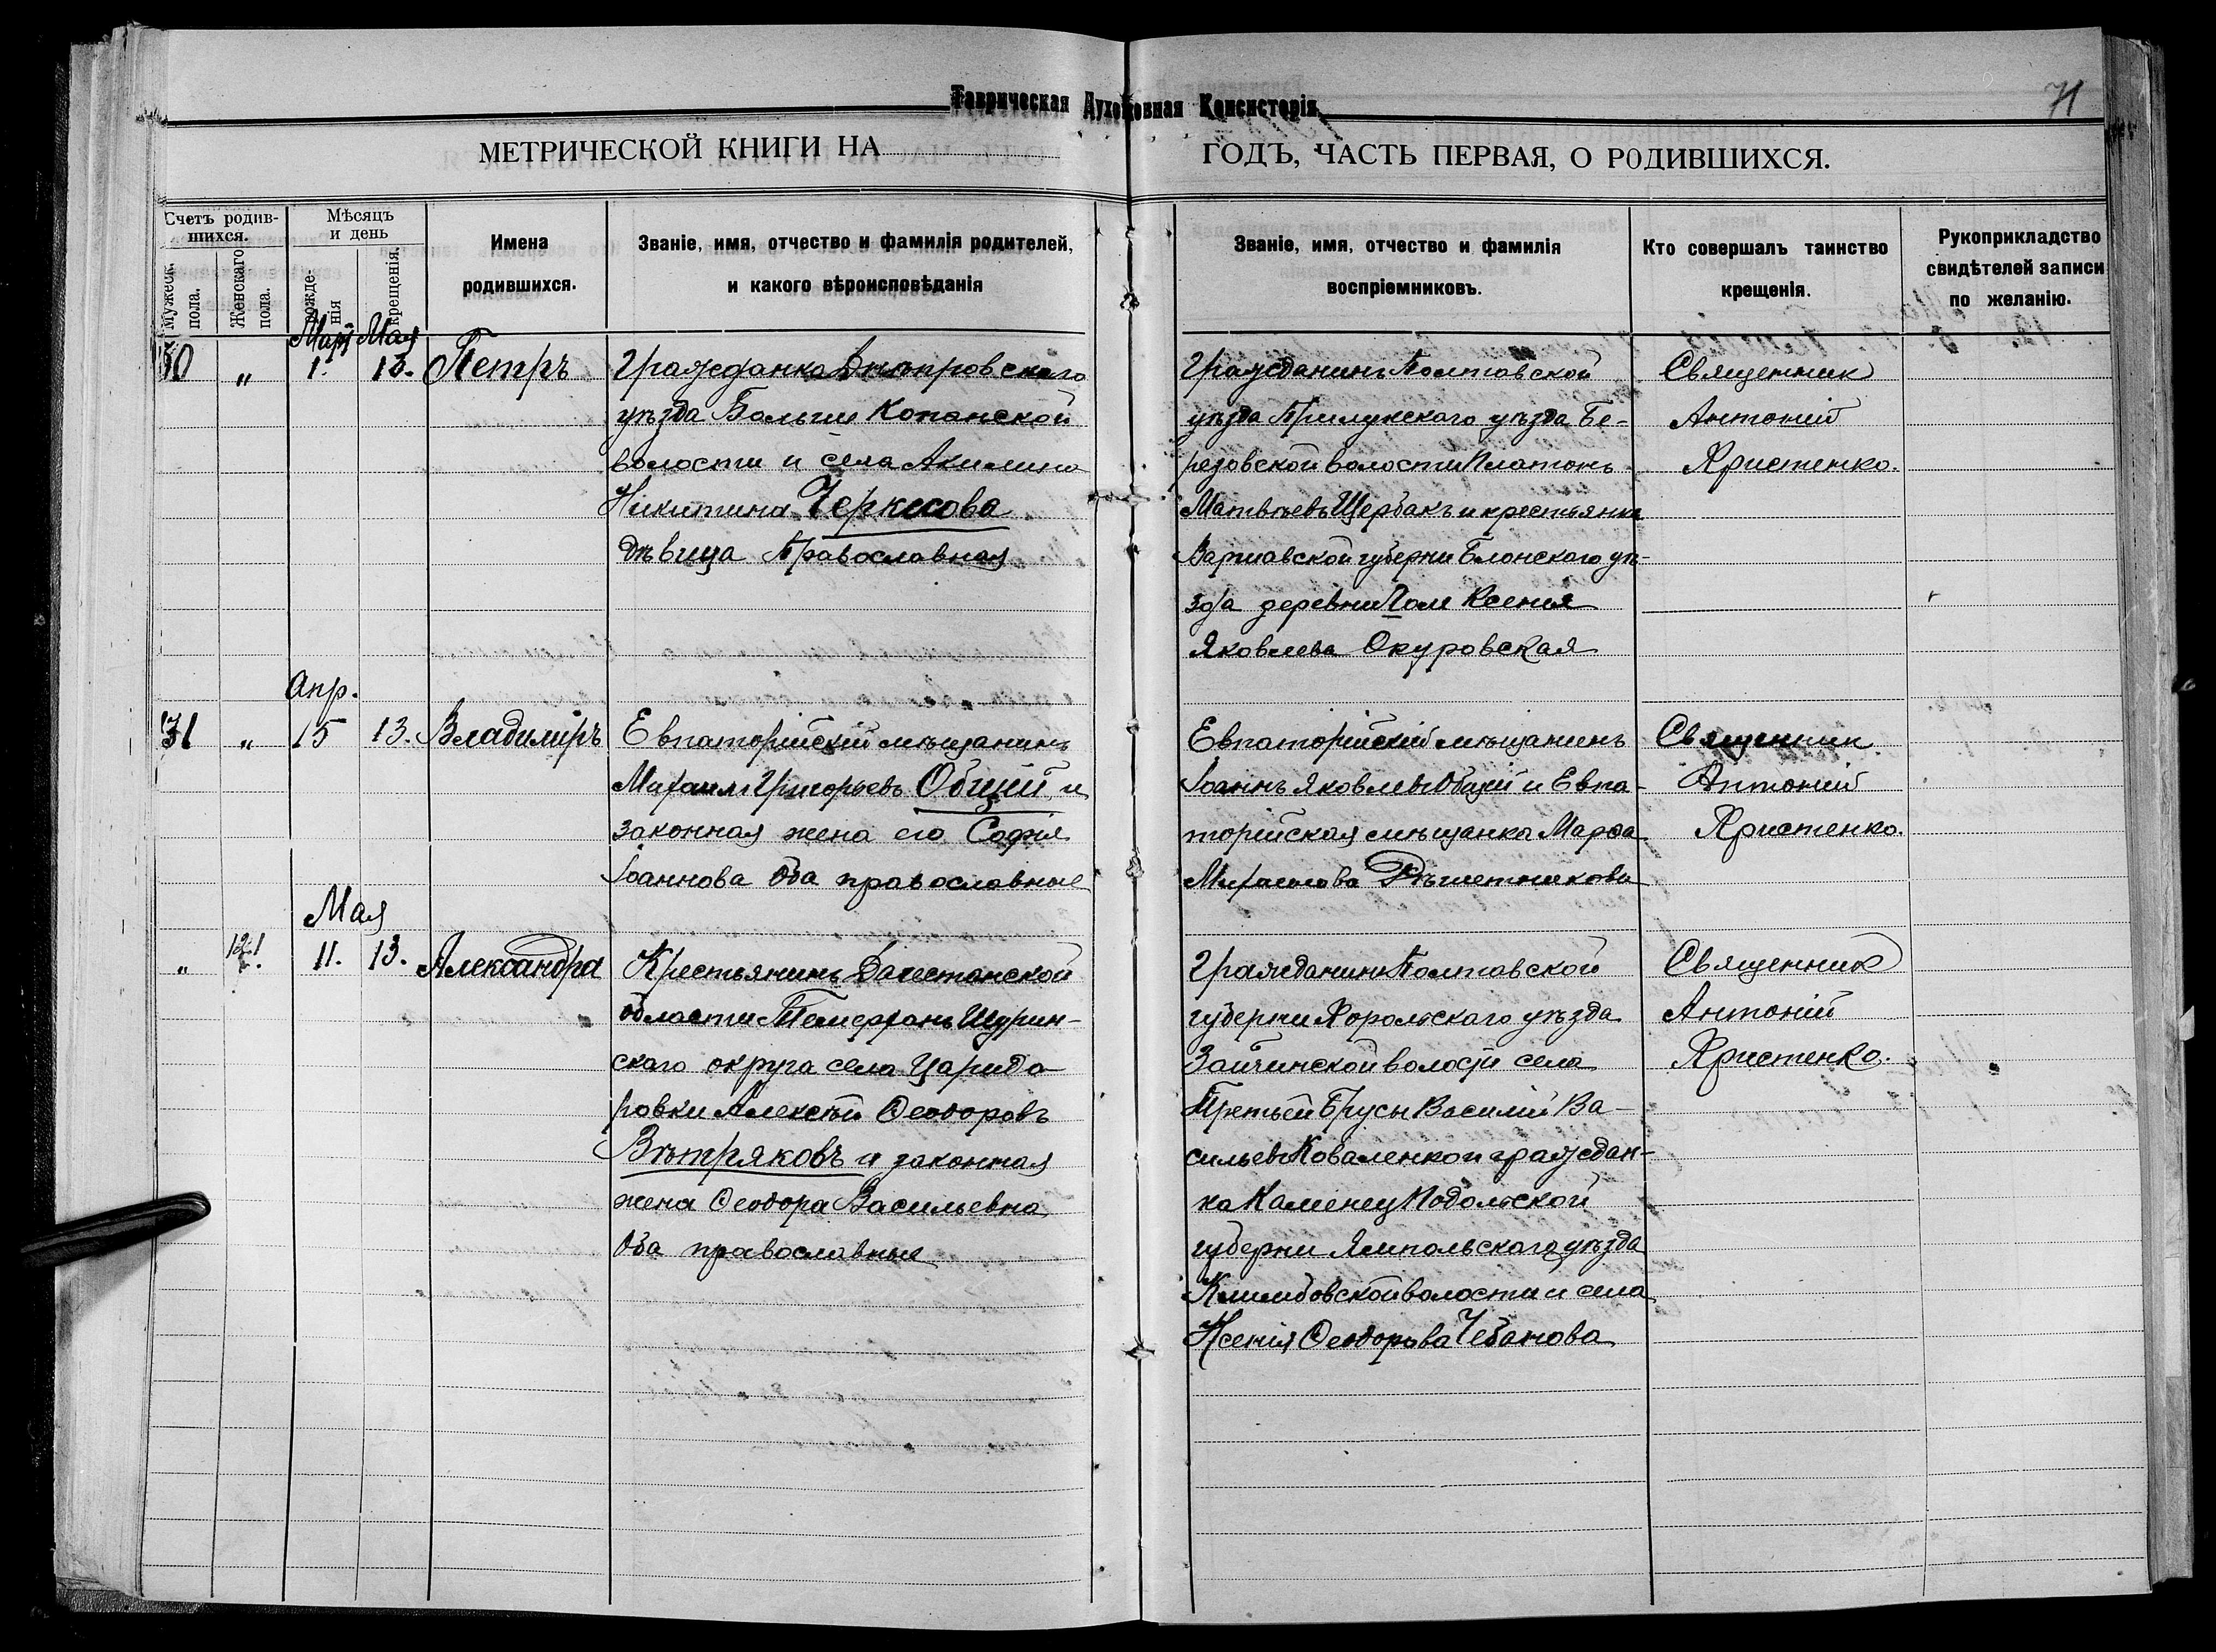 Таврическая Духовная Консисторія
71
МЕТРИЧЕСКОЙ КНИГИ НА ГОДЪ, ЧАСТЬ ПЕРВАЯ, О РОДИВШИХСЯ.
Счетъ родив-
шихся.
Мужеск.
пола.
Женскаго
пола.
Мѣсяцъ
и день
рожде-
нія
крещенія.
Имена
родившихся.
Званіе, имя, отчество и фамилія родителей,
и какого вѣроисповѣданія
Званіе, имя, отчество и фамилія
воспріемниковъ.
Кто совершалъ таинство
крещенія.
Рукоприкладство
свидѣтелей записи
по желанію.
Март Мая
30 " 1. 13. Петръ
Гражданка Днѣпровскаго
уѣзда Больше Копанской
волости и села Акилина
Никитина Черкесова
дѣвица Православная
Гражданинъ Полтавской
уѣзда Прилукского уѣзда Бе-
резовской волости Платонъ
Матвѣевъ Щербакъ и крестьянка
Варшавской губерни Блонского уѣ-
зда деревни Поля Ксенья
Яковлева Окуровская
Священник
Антоній
Христенко.
Апр.
31 " 15 13. Владиміръ
Евпаторійскій мѣщанинъ
Михаилъ Григорьевъ Общій и
законная жена его Софія
Іоаннова Оба православные
Евпаторійскій мѣщанинъ
Іоаннъ Яковлевъ Общій и Евпа-
торійская мѣщанка Марѳа
Михаилова Рѣшетникова
Священник
Антоній
Христенко.
Мая
" 11. 13. Александра
Крестьянинъ Дагестанской
области Темерханъ Шурин-
ского округа села Царида
ровки Алексѣй Ѳеодоровъ
Вѣтряковъ и законная
жена Ѳеодора Васильевна
Оба православные
Гражданинъ Полтавской
губерни Хорольского уѣзда
Зайчинской волости села
Третьей Брусы Василій Ва-
сильевъ Коваленко и граждан-
ка Каменец Подольской
губерни Ямпольского уѣзда
Климбовской волости и села
Ксенія Ѳеодорова Чебанова
Священник
Антоній
Христенко.